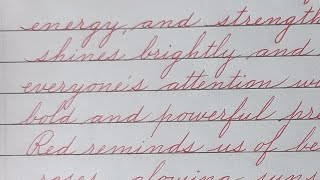 energy, and strength
shines brightly and
everyone's attention
bold and powerful
Red reminds us of
roses, glowing